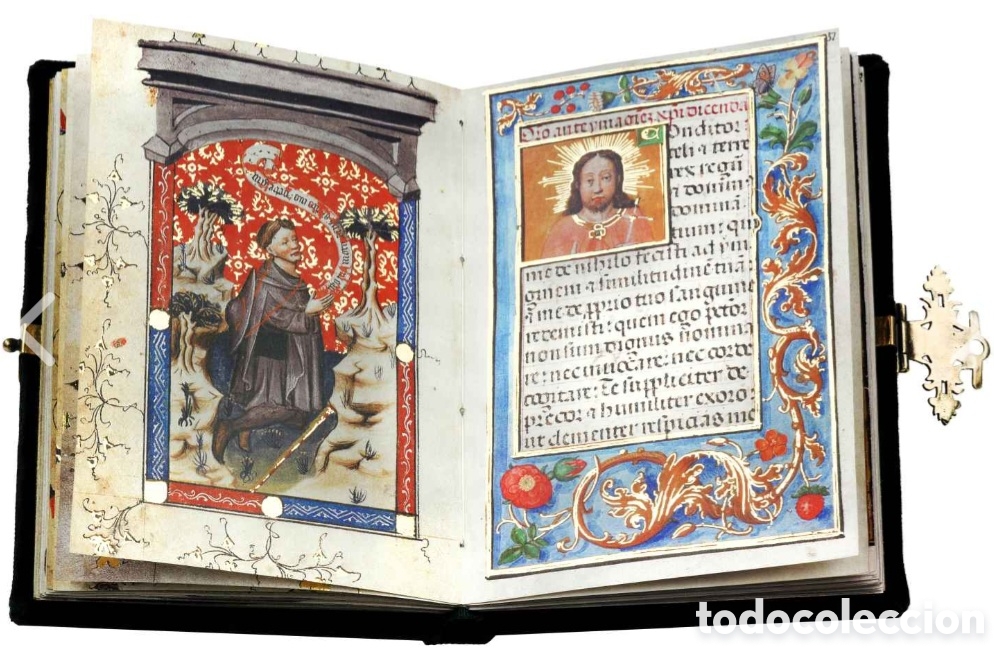 37
Oro ante ymagiez xpi dicenda
Conditor
celi & terre
rex regū
& domin
dominā
tium: qui
me de nihilo fecisti ad ym
ginem & similitudinē tuā
& me de pprio tuo sanguine
redemisti: quem ego pctor
non sum dignus nomina
re: nec invocare: nec corde
cogitare: Te suppliciter de
precor & humiliter exoro:
ut clementer respicias me
todocoleccion